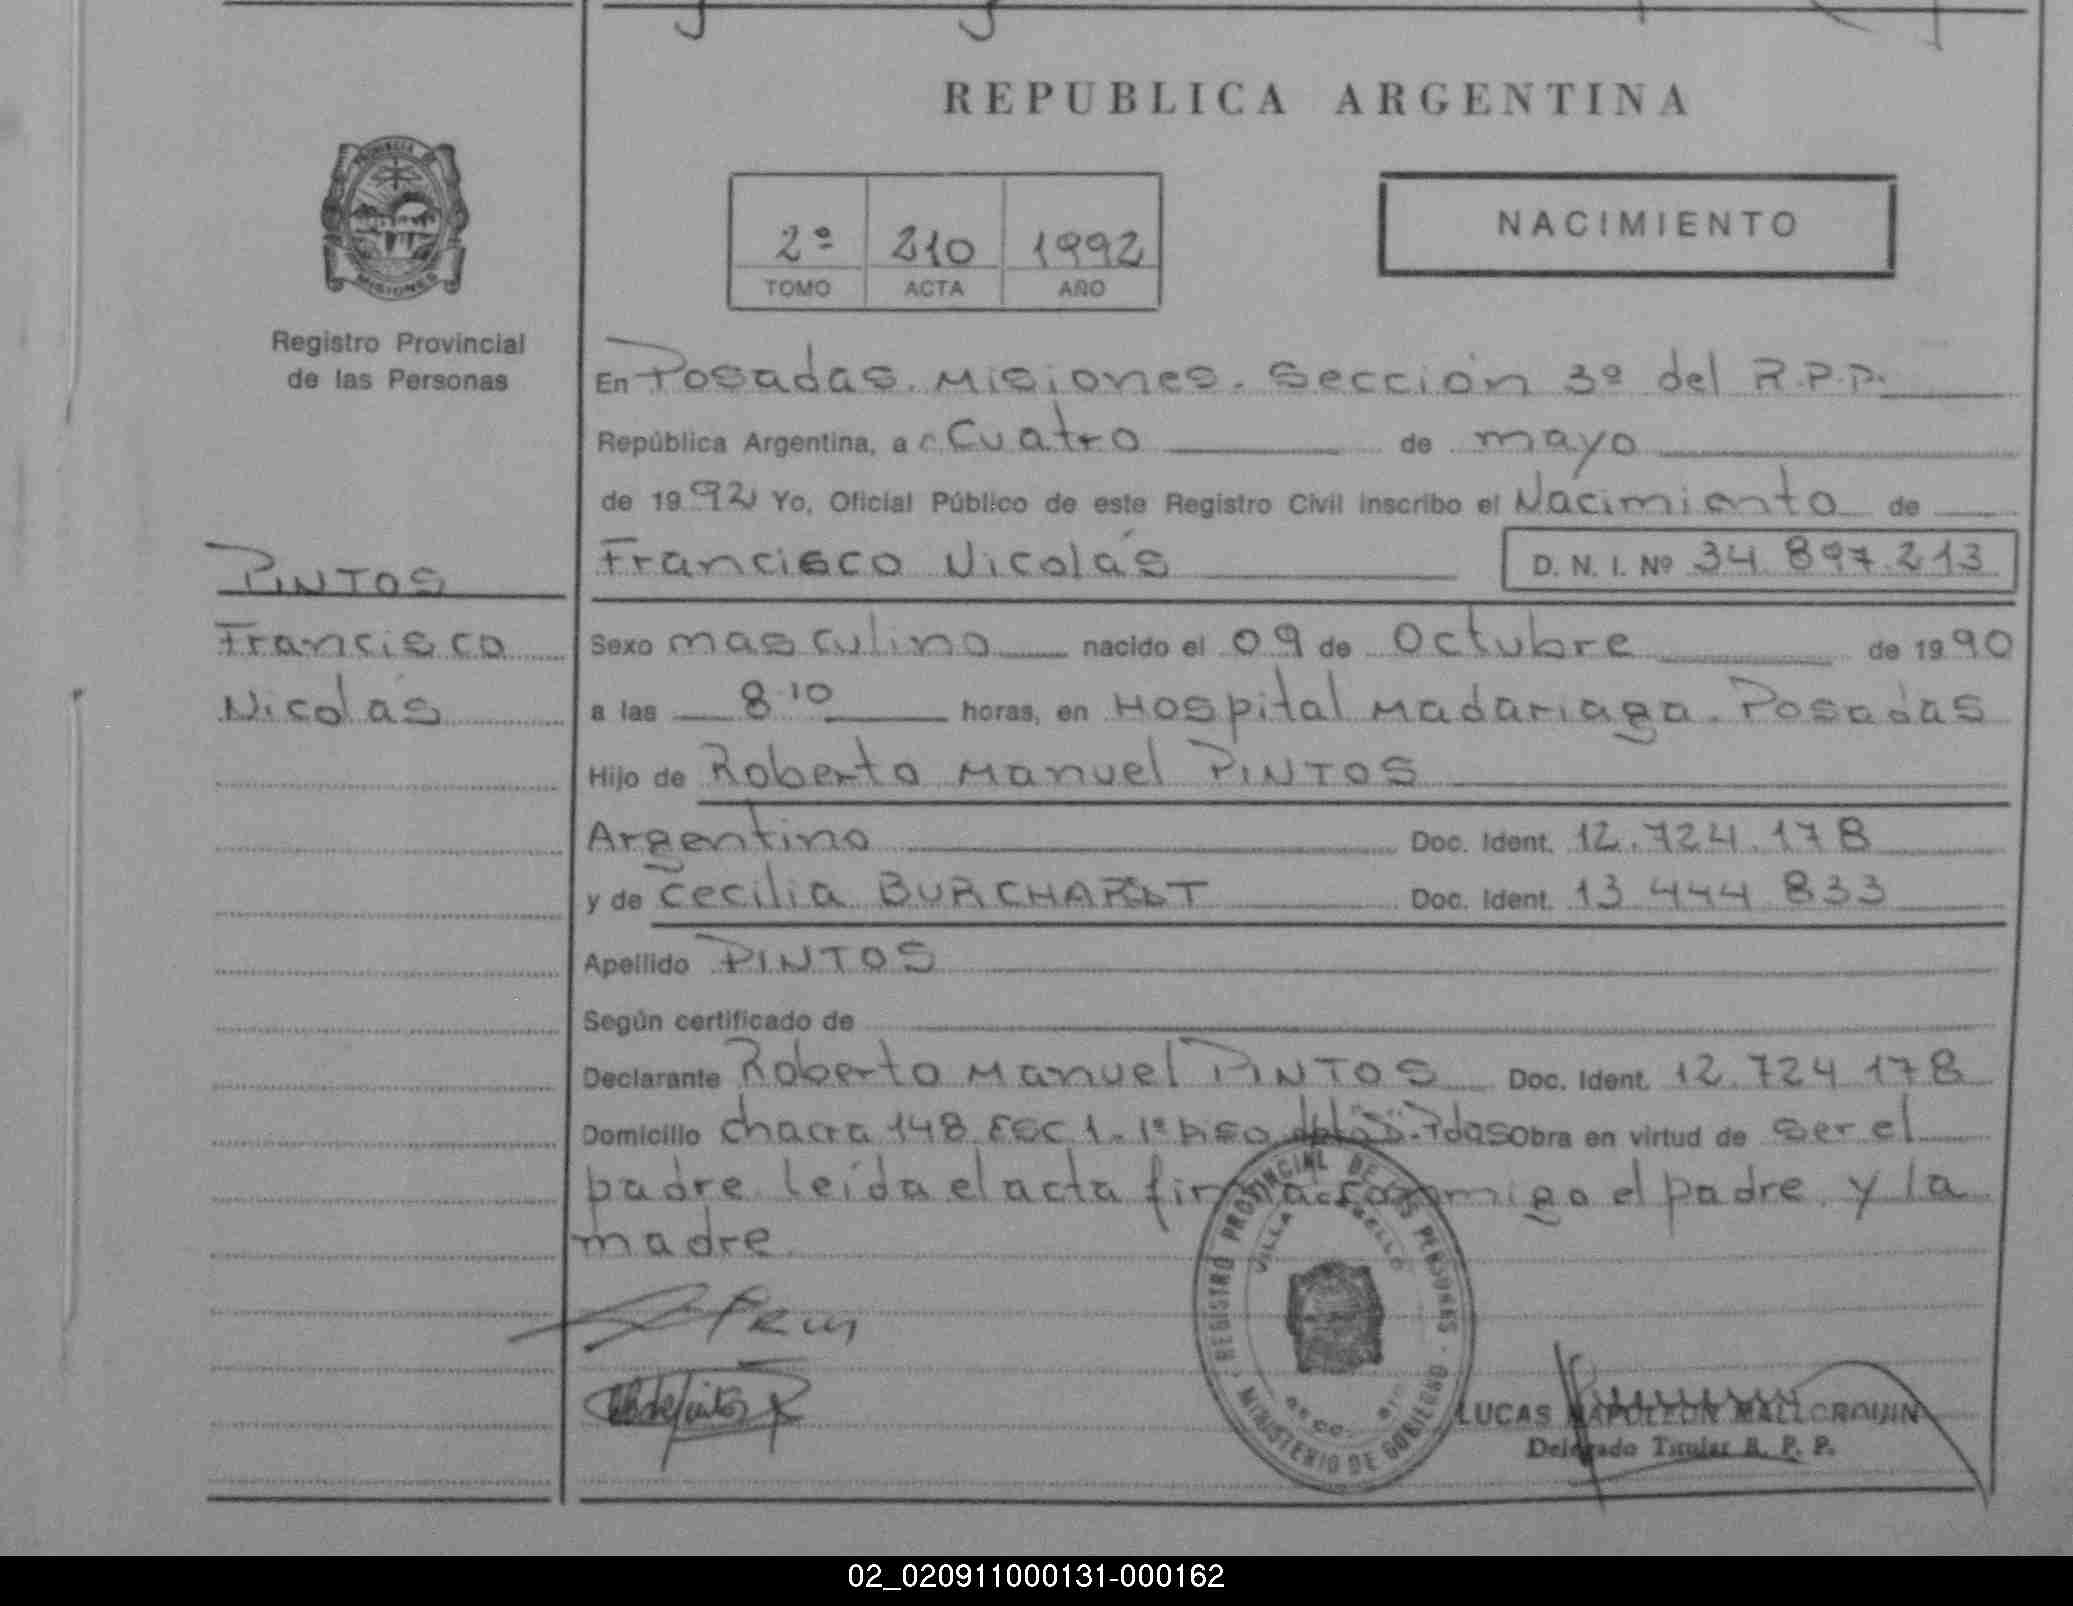 REPUBLICA ARGENTINA
PROVINCIA DE
MISIONES
Registro Provincial
de las Personas
2º 210 1992
TOMO ACTA AÑO
NACIMIENTO
En Posadas. Misiones. Sección 3º del R.P.P.
República Argentina, a Cuatro de mayo
de 1992 Yo, Oficial Público de este Registro Civil inscribo el Nacimiento de
PINTOS
Francisco Nicolás D. N. I. Nº 34.897.213
Francisco
Sexo masculino nacido el 09 de Octubre de 1990
Nicolás
a las 8.10 horas, en Hospital Madariaga. Posadas
Hijo de Roberto Manuel PINTOS
Argentino Doc. Ident. 12.724.178
y de Cecilia Doc. Ident. 13.444.833
Apellido PINTOS
Según certificado de
Declarante Roberto Manuel PINTOS Doc. Ident. 12.724.178
Domicilio chacra 148 ESC 1. 1º piso Pdas Obra en virtud de ser el
padre. leída el acta el padre y la
madre
REGISTRO PROVINCIAL DE LAS PERSONAS
VILLA CABELLO
MINISTERIO DE GOBIERNO
LUCAS NAPOLEON MALLORQUIN
Delegado Titular R. P. P.
02_020911000131-000162